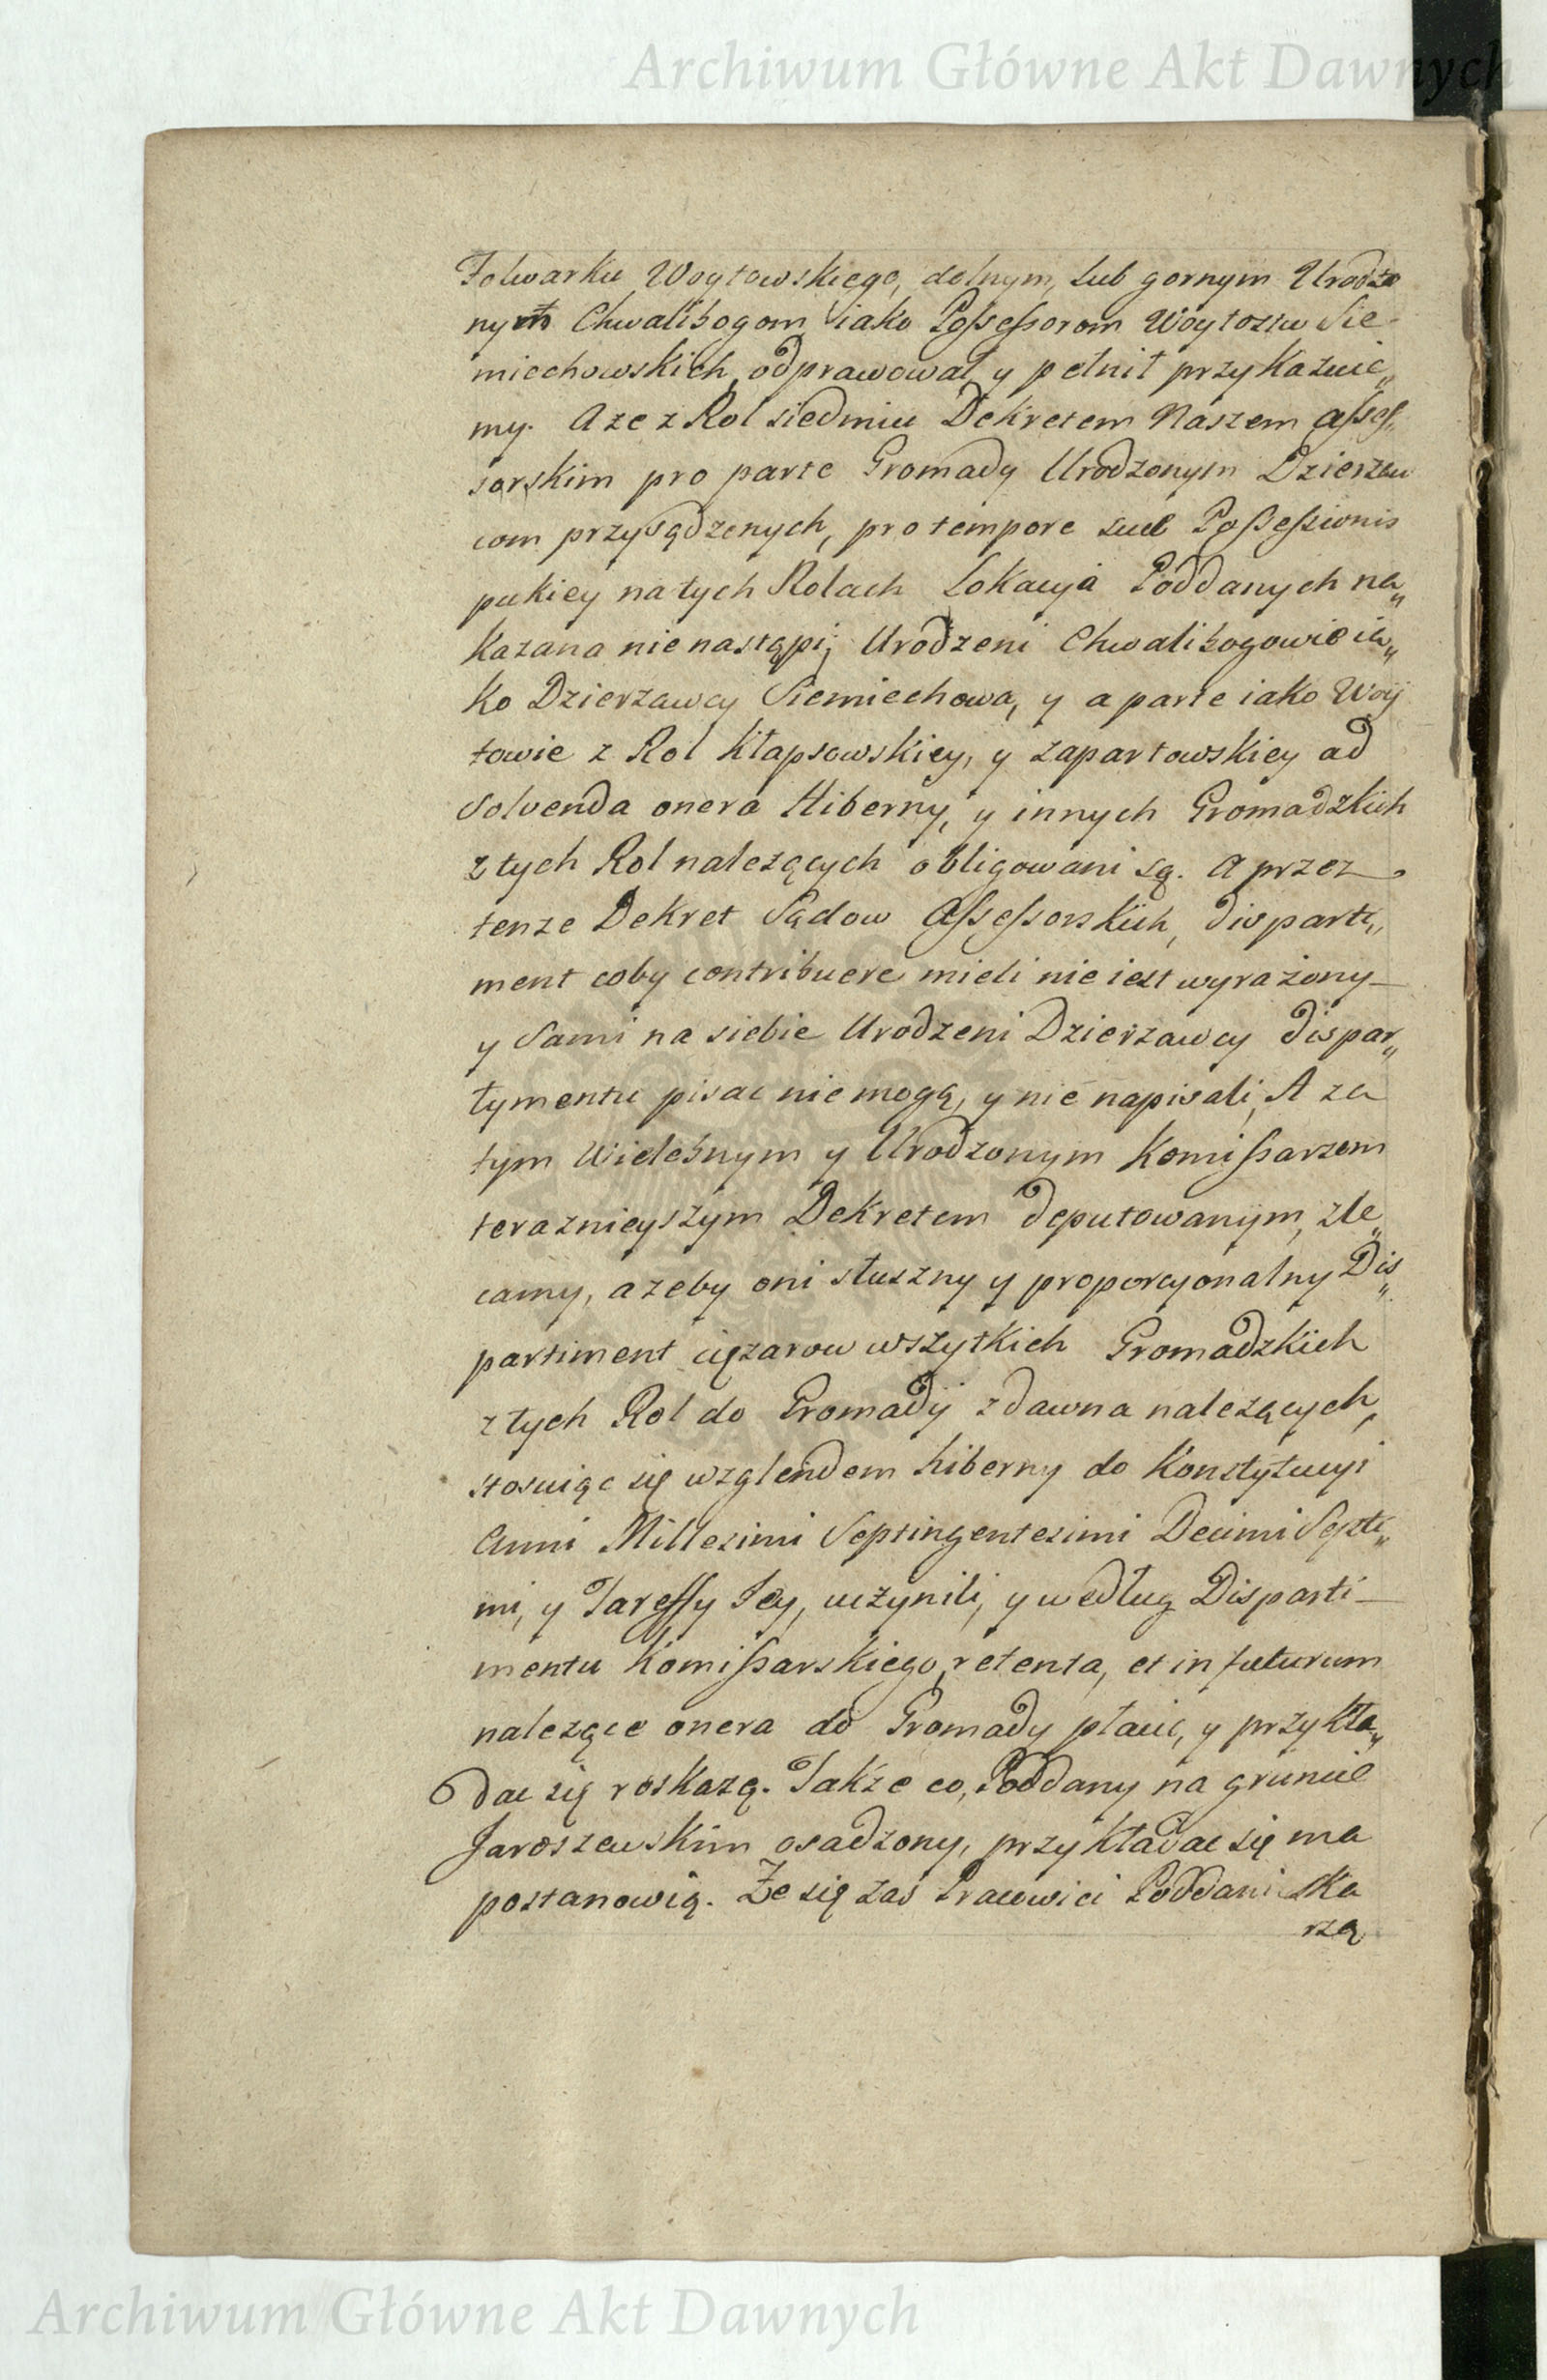 Archiwum Główne Akt Dawnych
Folwarku Woytowskiego, dolnym, lub gornym Urodzo
nym Chwalibogom iako Possessorom Woytostw Sie-
miechowskich, odprawował y pełnił przykazuie„
my. A że z Rol siedmiu Dekretem Naszem Asses„
sorskim pro parte Gromady Urodzonym Dzierzaw
com przysądzonych, pro tempore suæ Possessionis
pukiey na tych Rolach Lokacya Poddanych na„
kazana nie nastąpi; Urodzeni Chwalibogowie ia„
ko Dzierzawcy Siemiechowa, y a parte iako Woy
towie z Rol Kłapsowskiey, y Zapartowskiey ad
Solvenda onera Hiberny, y innych Gromadzkich
z tych Rol należących obligowani są. A przez
tenze Dekret Sądow Assessorskich, disparti„
ment coby contribuere mieli nie iest wyrażony
y Sami na siebie Urodzeni Dzierzawcy dispar„
tymentu pisac nie mogą, y nie napisali, A za
tym Wielebnym y Urodzonym Komissarzom
teraznieyszym Dekretem deputowanym, zle„
camy, azeby oni słuszny y proporcyonalny Dis„
partiment ciężarow wszytkich Gromadzkich
z tych Rol do Gromady zdawna należących,
stosuiąc się wzglendem hiberny do Konstytucyi
Anni Millesimi Septingentesimi Decimi Septi„
mi, y Tareffy Jey, uczynili, y według Disparti-
mentu Komissarskiego, retenta, et in futurum
należące onera do Gromady płacic, y przykła„
dac się roskażą. Także co, Poddany na gruncie
Jaroszewskim osadzony, przykładac się ma
postanowią. Że się zaś Pracowici Poddani ska
rzą
Archiwum Główne Akt Dawnych